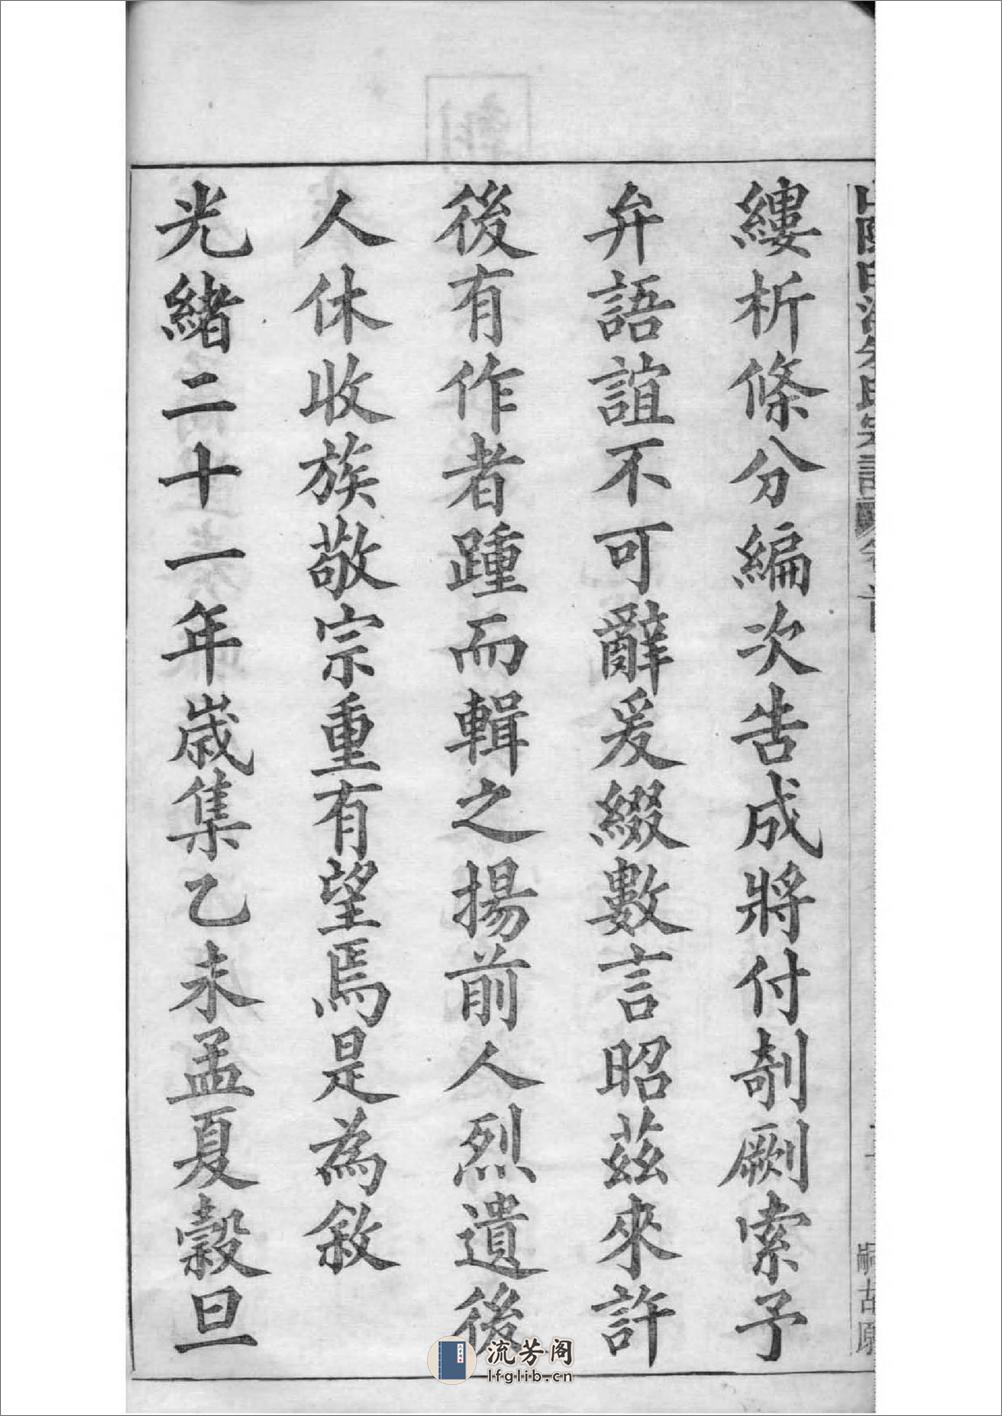 縷析條分編次告成將付剞劂索予
弁語誼不可辭爰綴數言昭茲來許
後有作者踵而輯之揚前人烈遺後
人休收族敬宗重有望焉是為敘
光緒二十一年歲集乙未孟夏穀旦
流芳阁
lfglib.cn